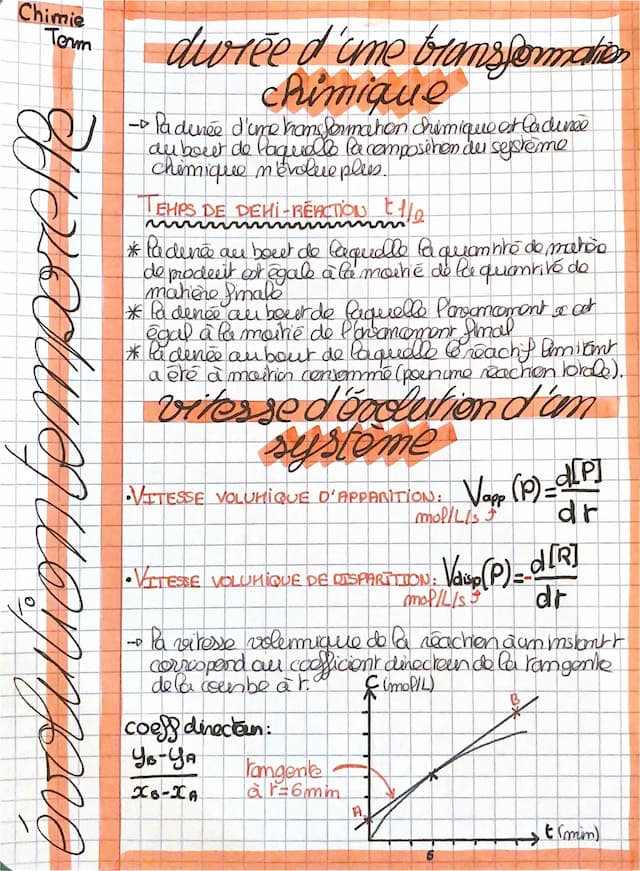 Chimie
Term
évolution temporelle
durée d'une transformation
chimique
→ la durée d'une transformation chimique est la durée
au bout de laquelle la composition du système
chimique n'évolue plus.
TEMPS DE DEMI-RÉACTION t1/2
* la durée au bout de laquelle la quantité de matière
de produit est égale à la moitié de la quantité de
matière finale
* la durée au bout de laquelle l'avancement x est
égal à la moitié de l'avancement final
* la durée au bout de laquelle le réactif limitant
a été à moitié consommé (pour une réaction totale).
vitesse d'évolution d'un
système
• VITESSE VOLUMIQUE D'APPARITION: Vapp (P) = d[P]/dt
mol/L/s
• VITESSE VOLUMIQUE DE DISPARITION: Vdisp(P) = -d[R]/dt
mol/L/s
→ la vitesse volumique de la réaction à un instant t
correspond au coefficient directeur de la tangente
de la courbe à t.
C (mol/L)
B
coeff directeur:
yB-yA
xB-xA
tangente
à t=6min
A
t (min)
6